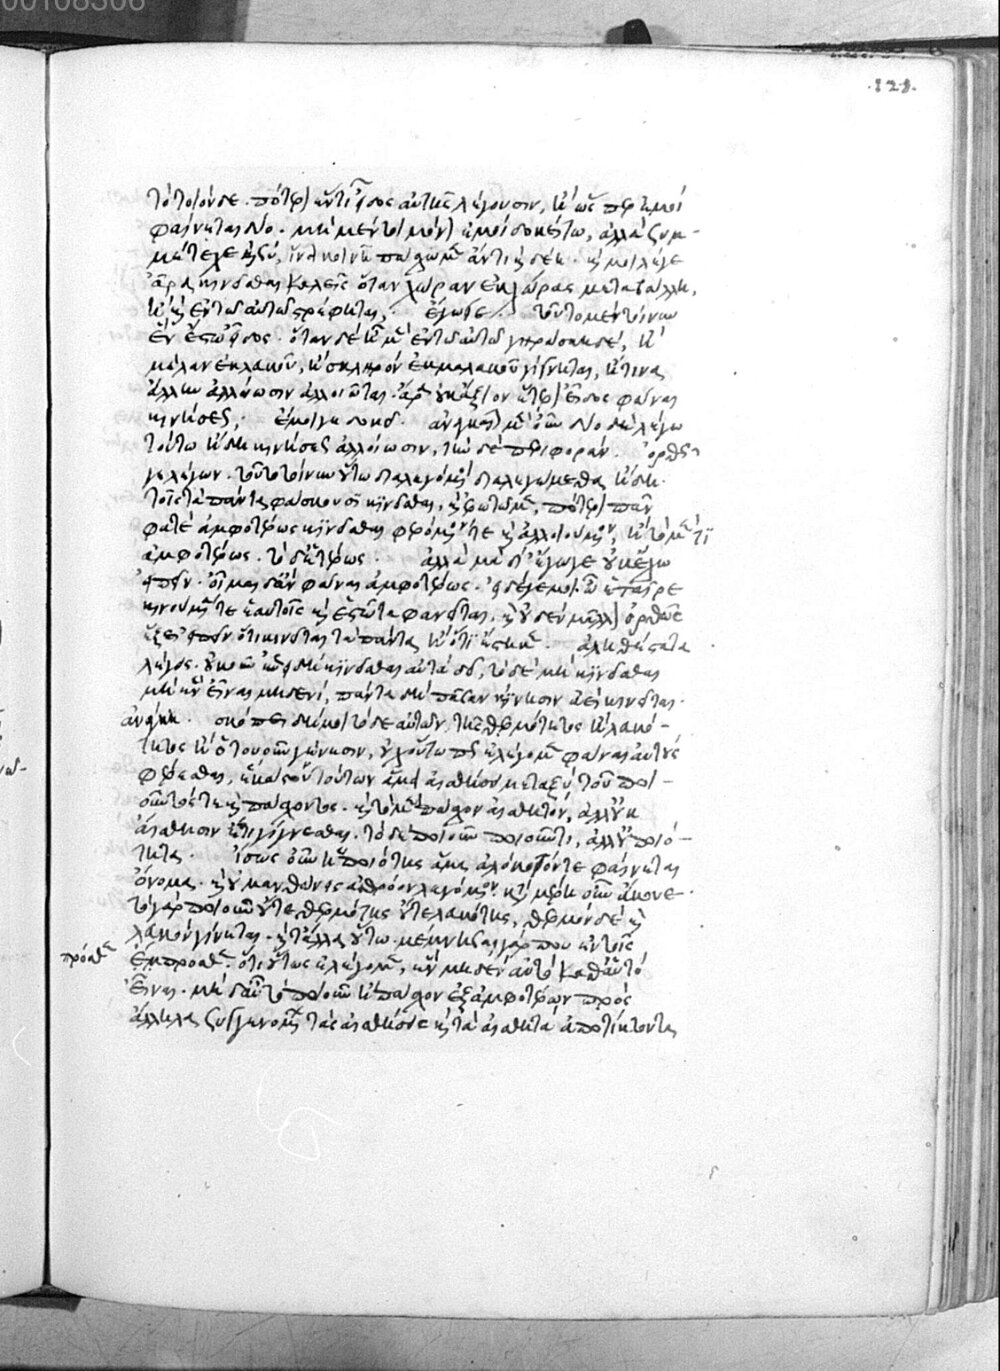 τὸ τοιόνδε· πότερον ἕν τι εἶδος αὐτῆς λέγουσιν, ἢ ὥσπερ ἐμοὶ
φαίνεται δύο· μὴ μέντοι μόνον ἐμοὶ δοκείτω, ἀλλὰ ξυμ-
μέτεχε καὶ σύ, ἵνα κοινῇ πάσχωμεν ἄν τι καὶ δέῃ· καί μοι λέγε
ἆρα κινεῖσθαι καλεῖς ὅταν χώραν ἐκ χώρας μεταβάλλῃ,
ἢ καὶ ἐν τῷ αὐτῷ στρέφηται; ἔγωγε. τοῦτο μὲν τοίνυν
ἓν ἔστω εἶδος· ὅταν δὲ ᾖ μὲν ἐν τῷ αὐτῷ γηράσκῃ δέ, ἢ
μέλαν ἐκ λευκοῦ, ἢ σκληρὸν ἐκ μαλακοῦ γίγνηται, ἤ τινα
ἄλλην ἀλλοίωσιν ἀλλοιῶται· ἆρ' οὐκ ἄξιον ἕτερον εἶδος φάναι
κινήσεως; ἔμοιγε δοκεῖ. ἀναγκαῖον μὲν οὖν δύο δὴ λέγω
τούτω εἴδη κινήσεως ἀλλοίωσιν, τὴν δὲ περιφοράν. ὀρθῶς
γε λέγων. τοῦτο τοίνυν οὕτω διελόμενοι διαλεγώμεθα ἤδη
τοῖς τὰ πάντα φάσκουσι κινεῖσθαι, καὶ ἐρωτῶμεν, πότερον πᾶν
φατὲ ἀμφοτέρως κινεῖσθαι φερόμενόν τε καὶ ἀλλοιούμενον, ἢ τὸ μέν τι
ἀμφοτέρως, τὸ δ' ἑτέρως. ἀλλὰ μὰ δί' ἔγωγε οὐκ ἔχω
εἰπεῖν· οἶμαι δ' ἂν φάναι ἀμφοτέρως. εἰ δέ γε μὴ ὦ ἑταῖρε
κινούμενά τε ἑαυτοῖς καὶ ἑστῶτα φανεῖται, καὶ οὐδὲν μᾶλλον ὀρθῶς
ἕξει εἰπεῖν ὅτι κινεῖται τὰ πάντα ἢ ὅτι ἕστηκεν. ἀληθέστατα
λέγεις. οὐκοῦν ἐπειδὴ κινεῖσθαι αὐτὰ δεῖ, τὸ δὲ μὴ κινεῖσθαι
μὴ ἐνεῖναι μηδενί, πάντα δὴ πᾶσαν κίνησιν ἀεὶ κινεῖται.
ἀνάγκη. σκόπει δή μοι τόδε αὐτῶν, τῆς θερμότητος ἢ λευκό-
τητος ἢ ὁτουοῦν γένεσιν, οὐχ οὕτω πῃ ἐλέγομεν φάναι αὐτοὺς
φέρεσθαι, ἕκαστον τούτων ἅμα αἰσθήσει μεταξὺ τοῦ ποι-
οῦντός τε καὶ πάσχοντος. καὶ τὸ μὲν πάσχον αἰσθητόν, ἀλλ' οὐκ
αἴσθησιν ἔτι γίγνεσθαι. τὸ δὲ ποιοῦν ποιοῦν τι, ἀλλ' οὐ ποιό-
τητα. ἴσως οὖν ἡ ποιότης ἅμα ἀλλόκοτόν τε φαίνεται
ὄνομα. καὶ οὐ μανθάνεις ἀθρόον λεγόμενον. κατὰ μέρη οὖν ἄκουε.
τὸ γὰρ ποιοῦν οὔτε θερμότης οὔτε λευκότης, θερμὸν δὲ καὶ
λευκὸν γίνεται. καὶ τἄλλα οὕτω. μέμνησαι γάρ που ἐν τοῖς
πρόσθεν
ἔμπροσθεν. ὅτι οὕτως ἐλέγομεν, ἓν μηδὲν αὐτὸ καθ' αὑτὸ
εἶναι. μὴ δ' αὖ τὸ ποιοῦν ἢ πάσχον ἐξ ἀμφοτέρων πρὸς
ἄλληλα ξυγγιγνομένων τὰς αἰσθήσεις καὶ τὰ αἰσθητὰ ἀποτίκτοντα